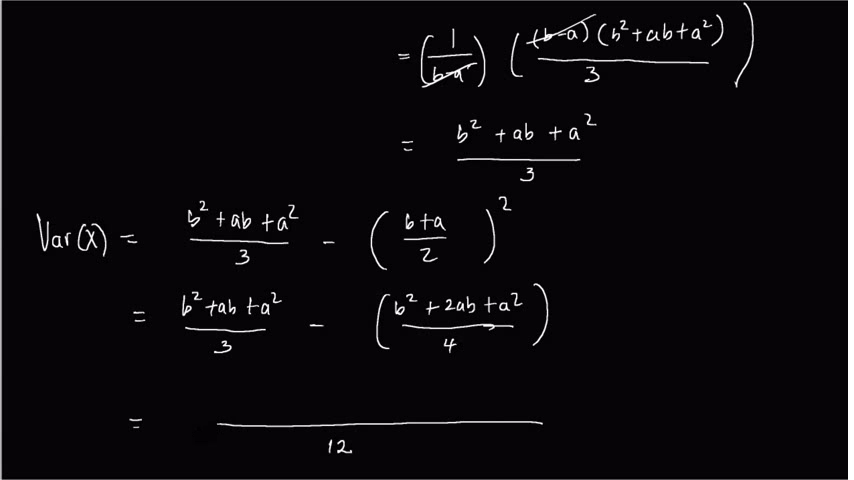 = (1/(b-a)) ((b-a)(b²+ab+a²)/3)
= (b²+ab+a²)/3
Var(X) = (b²+ab+a²)/3 - ((b+a)/2)²
= (b²+ab+a²)/3 - ((b²+2ab+a²)/4)
= /12